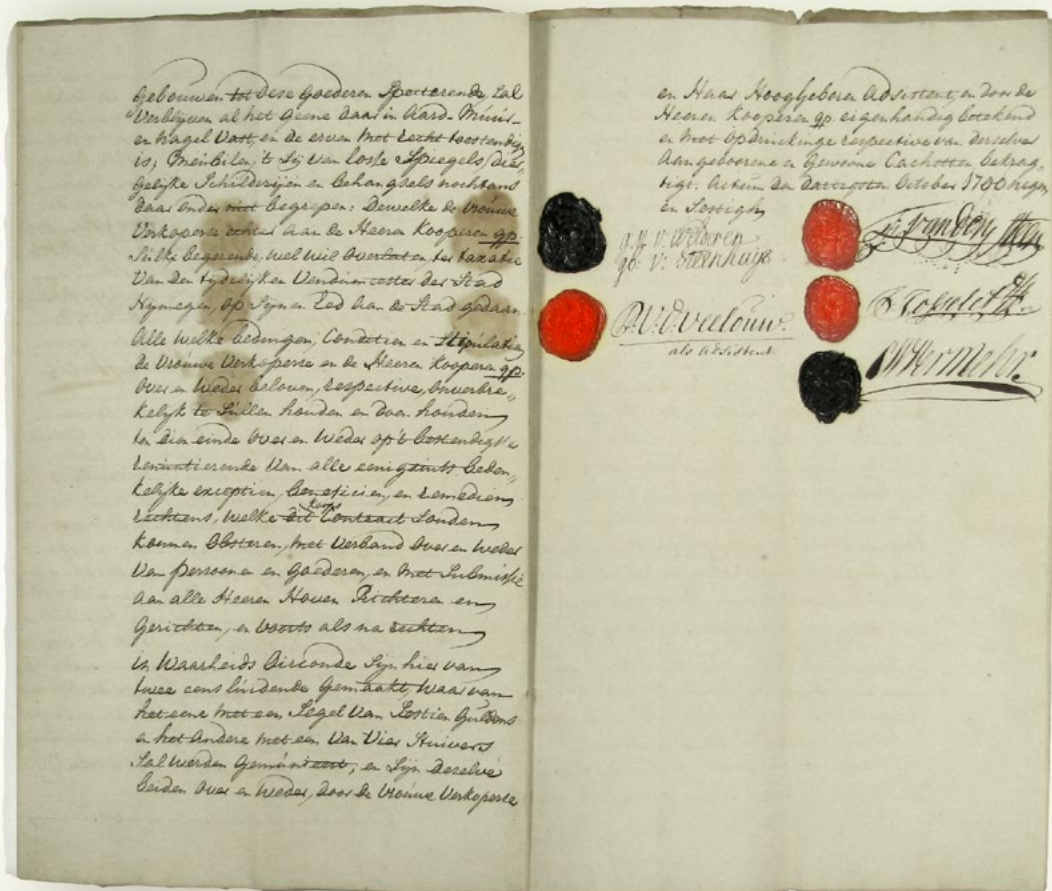 Gebouwen tot dese Goederen Specterende, Sal
Verblijven al het geene daar in Aard- Muur-
en Nagel Vast, en de erven met recht toestendig
is; Meubilen, 't Sij van losse Spiegels, dier
gelijke Schilderijen en behangsels nochtans
daar onder niet begrepen: Dewelke de Vrouwe
Verkoperse aan de Heeren Kooperen qp.
Sulks begerende, wel wil overlaten, ter taxatie
van den tijdelijken Vendumeester der Stad
Nijmegen, op Sijnen Eed aan de Stad gedaan
Alle welke bedingen, Conditien en Stipulatien
de Vrouwe Verkoperse en de Heeren Kooperen qp.
over en Weder beloven, respective, onverbre,,
kelijk te Sullen houden en doen houden
ten dien einde over en Weder op 't bestendigste
renuntierende van alle eenigsints beden,,
kelijke exceptien, beneficien, en remedien
rechtens, welke dit Koops Contract Souden
konnen obsteren, met verband over en weder
van persoonen en goederen, en met Submissie
aan alle Heeren Hoven Richteren en
Gerichten, en voorts als na rechten
in Waarheids Oirconde Sijn hier van
twee eens luidende gemaakt, waar van
het eene met een Segel van Sestien Guldens
en het andere met een van Vier Stuivers
Sal werden gemunieert, en Sijn deselve
beiden over en Weder, door de Vrouwe Verkoperse
en Haar Hooghgeboren Adsistent, en door de
Heeren Kooperen qp. eigenhandig getekend
en met opdruckinge respective van derselver
Aangeboorene en Gewoone Cachetten bekrag,,
tigt. Actum den dertigsten October 1700 negen
en Sestigh
v. Welderen
v. Steenhuys
als adsistent
Vermehr.